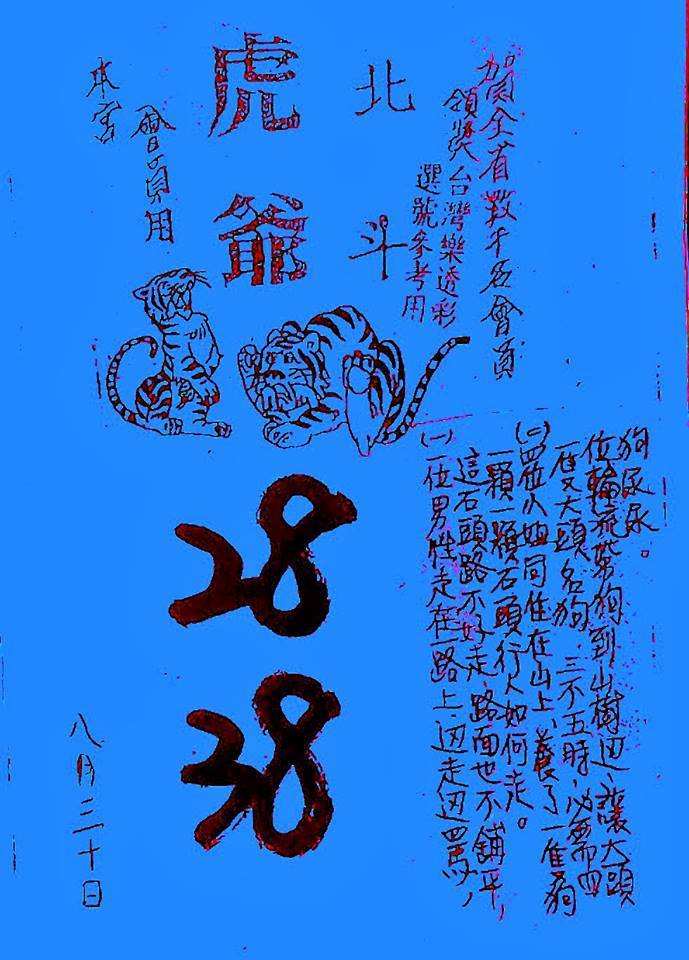 賀全省數千名會員
領獎台灣樂透彩
選號參考用
北斗
虎爺
會員用
本宮
(一)一位男性走在一路上,边走边罵,
這石頭路不好走,路面也不鋪平,
一顆一顆石頭行人如何走。
(二)四位小姐同住在山上,養了一隻狗
一隻大頭名狗,三不五時,必需四
位輪流帶狗到山樹边,讓大頭
狗尿尿。
28
38
八月三十日